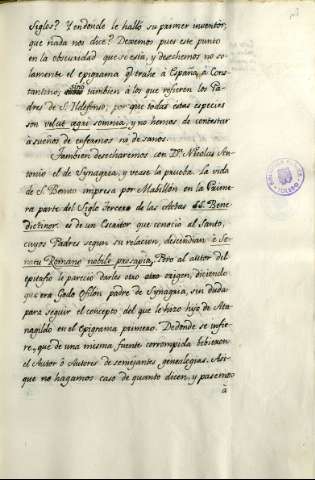 Siglos? Y en donde le halló su primer inventor,
que nada nos dice? Dexemos pues este punto
en la obscuridad que se esta, y desechemos no so-
lamente el epigrama q.e trahe à España, à Cons-
tantino; sino tambien à los que refieren los Pa-
dres de S. Ildefonso; por que todas éstas especies
son velut ægri somnia, y no hemos de contextar
à sueños de enfermos ni de sanos.
Tambien desecharemos con D.n Nicolas An-
tonio el de Synagria, y vease la prueba. La vida
de S. Benito impresa por Mabillón en la Prime-
ra parte del Siglo tercero de las Actas
Bene
dictinor. es de un Escritor que conoció al Santo,
cuyos Padres segun su relacion, descendian è Se-
natu Romano nobile prosapia, Pero al autor del
epitafio le pareció darles otro origen, diciendo
que era Godo Ofilón padre de Synagria, sin duda
para seguir el concepto, del que le hizo hijo de Ata-
nagildo en el epigrama primero. De donde se infie-
re, que de una misma fuente corrompida bebieron
el Autor ò Autores de semejantes genealogias. Asi-
que no hagamos caso de quanto dicen, y pasemos
à
TOLEDO